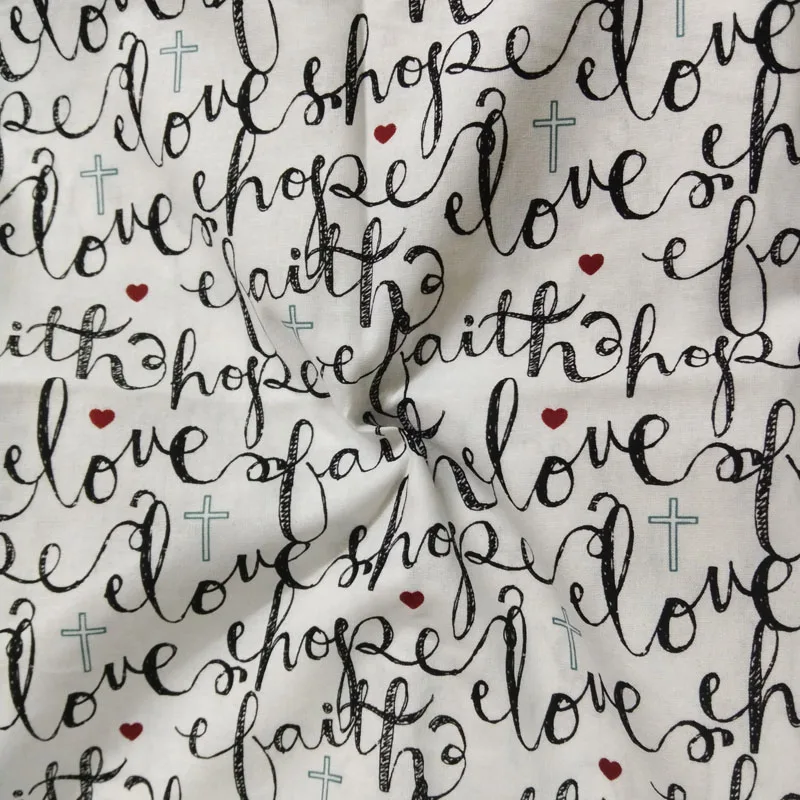 love
love hope love
hope love h
love faith fa
ith hope faith hope
love faith love f
love hope love
love hope love h
faith
ith